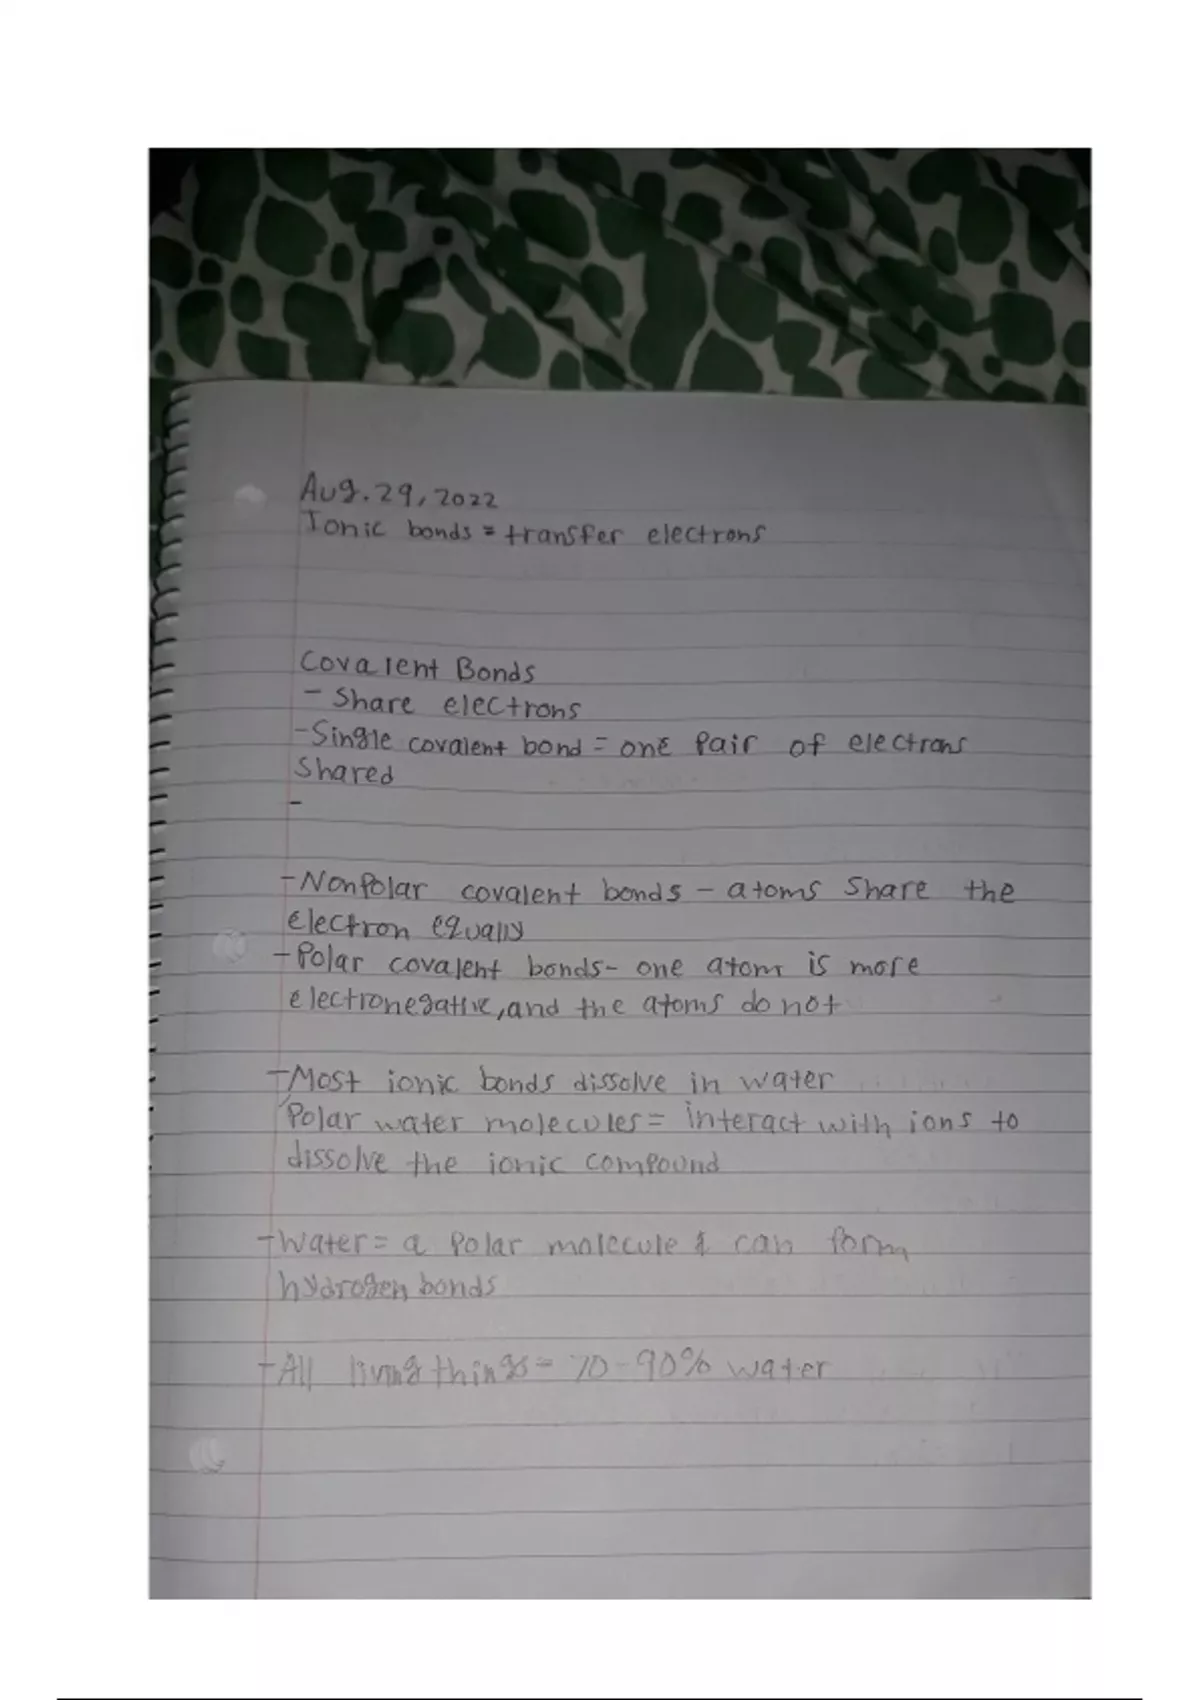 Aug. 29, 2022
Ionic bonds = transfer electrons
Covalent Bonds
- Share electrons
- Single covalent bond = one pair of electrons
Shared
-
- Nonpolar covalent bonds - atoms share the
electron equally
- Polar covalent bonds - one atom is more
electronegative, and the atoms do not
- Most ionic bonds dissolve in water
Polar water molecules = interact with ions to
dissolve the ionic compound
- Water = a polar molecule & can form
hydrogen bonds
- All living things = 70-90% water